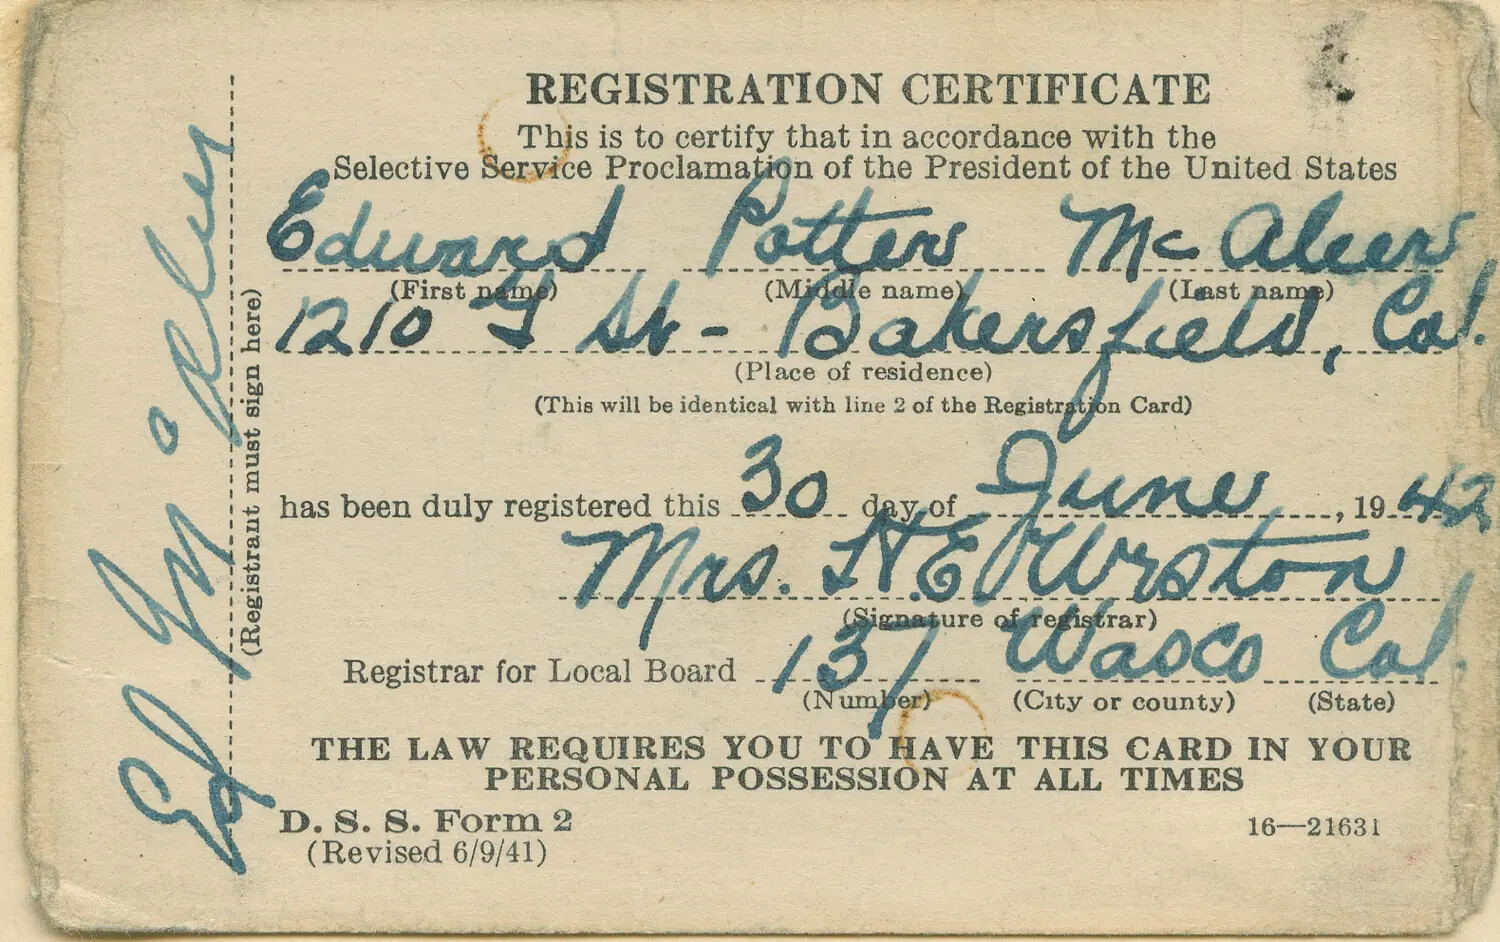 REGISTRATION CERTIFICATE
This is to certify that in accordance with the
Selective Service Proclamation of the President of the United States
Edward Potter McAleer
(First name) (Middle name) (Last name)
1210 F St - Bakersfield, Cal.
(Place of residence)
(This will be identical with line 2 of the Registration Card)
has been duly registered this 30 day of June, 1942
Mrs. H.E. Wrston
(Signature of registrar)
Registrar for Local Board 137 Wasco Cal.
(Number) (City or county) (State)
THE LAW REQUIRES YOU TO HAVE THIS CARD IN YOUR
PERSONAL POSSESSION AT ALL TIMES
D. S. S. Form 2
(Revised 6/9/41)
16—21631
Ed McAleer
(Registrant must sign here)